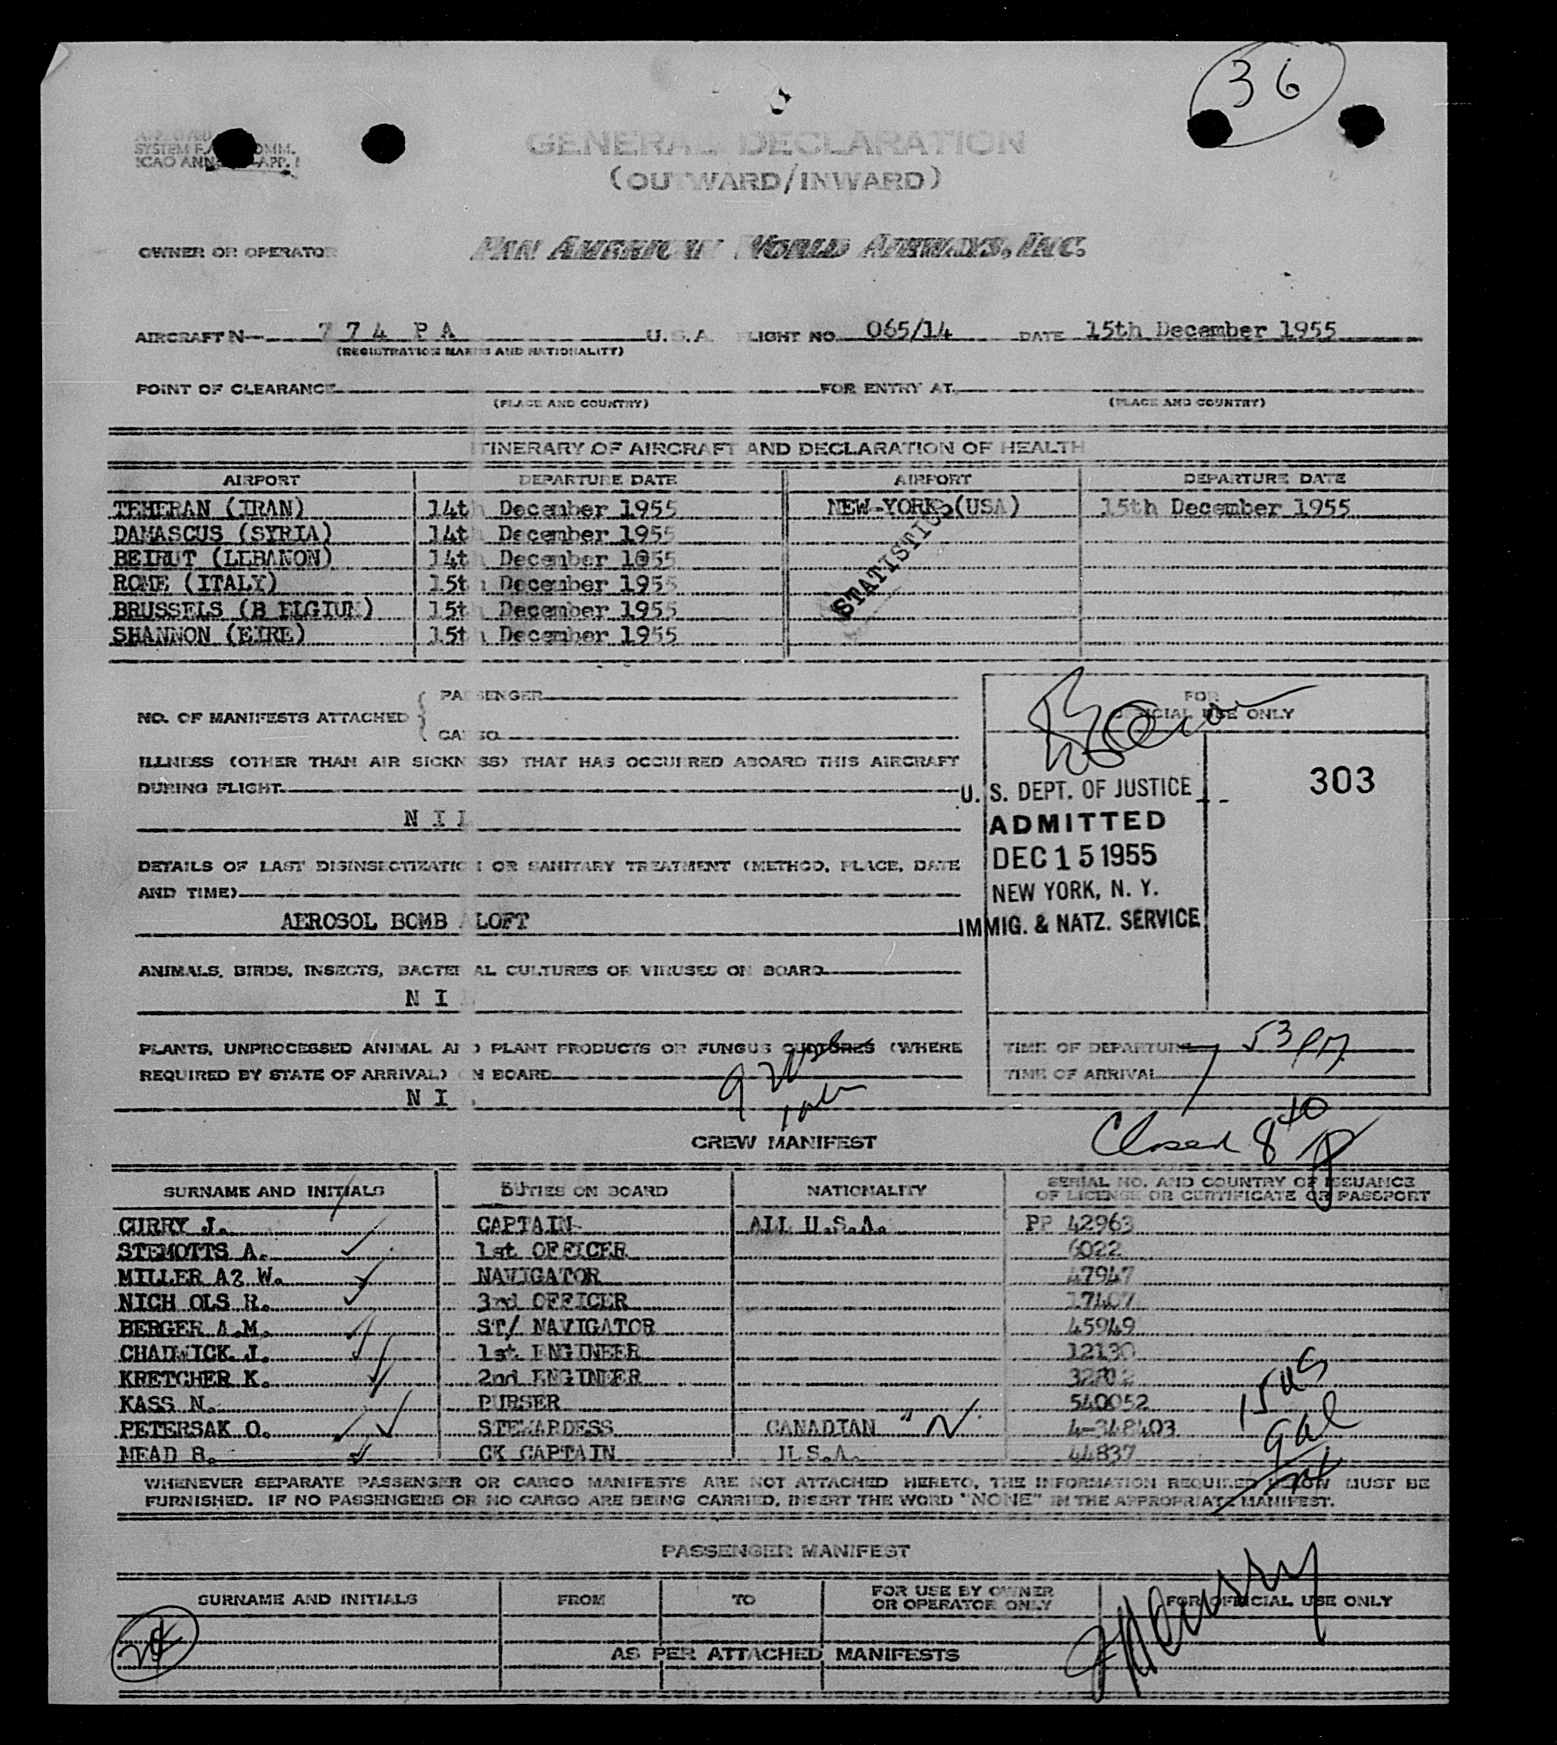 36
GENERAL DECLARATION
(OUTWARD/INWARD)
OWNER OR OPERATOR PAN AMERICAN WORLD AIRWAYS, INC.
AIRCRAFT N 774 PA U.S.A. FLIGHT NO. 065/14 DATE 15th December 1955
(REGISTRATION MARKS AND NATIONALITY)
POINT OF CLEARANCE FOR ENTRY AT
(PLACE AND COUNTRY) (PLACE AND COUNTRY)
ITINERARY OF AIRCRAFT AND DECLARATION OF HEALTH
AIRPORT DEPARTURE DATE AIRPORT DEPARTURE DATE
TEHERAN (IRAN) 14th December 1955 NEW-YORK (USA) 15th December 1955
DAMASCUS (SYRIA) 14th December 1955
BEIRUT (LEBANON) 14th December 1955
ROME (ITALY) 15th December 1955
BRUSSELS (B ELGIUM) 15th December 1955
SHANNON (EIRE) 15th December 1955
STATISTICS
NO. OF MANIFESTS ATTACHED
PASSENGER
CARGO
FOR
OFFICIAL USE ONLY
ILLNESS (OTHER THAN AIR SICKNESS) THAT HAS OCCURRED ABOARD THIS AIRCRAFT
DURING FLIGHT
NIL
303
U. S. DEPT. OF JUSTICE
ADMITTED
DEC 15 1955
NEW YORK, N. Y.
IMMIG. & NATZ. SERVICE
DETAILS OF LAST DISINSECTIZATION OR SANITARY TREATMENT (METHOD, PLACE, DATE
AND TIME)
AEROSOL BOMB ALOFT
ANIMALS, BIRDS, INSECTS, BACTERIAL CULTURES OR VIRUSES ON BOARD
NIL
PLANTS, UNPROCESSED ANIMAL AND PLANT PRODUCTS OR FUNGUS CULTURES (WHERE
REQUIRED BY STATE OF ARRIVAL) ON BOARD
NIL
TIME OF DEPARTURE 7 53 PM
TIME OF ARRIVAL
Closed 8 40 P
CREW MANIFEST
SURNAME AND INITIALS DUTIES ON BOARD NATIONALITY SERIAL NO. AND COUNTRY OF ISSUANCE
OF LICENSE OR CERTIFICATE OR PASSPORT
CURRY J. CAPTAIN ALL U.S.A. PP 42963
STEMOTTS A. 1st OFFICER 6022
MILLER A? W. NAVIGATOR 47947
NICH OLS R. 3rd OFFICER 17407
BERGER A.M. ST/ NAVIGATOR 45949
CHADWICK J. 1st ENGINEER 12130
KRETCHER K. 2nd ENGINEER
KASS N. PURSER 540052
PETERSAK O. STEWARDESS CANADIAN "N" 4-348403
MEAD B. CK CAPTAIN U.S.A. 44837
15 US
WHENEVER SEPARATE PASSENGER OR CARGO MANIFESTS ARE NOT ATTACHED HERETO, THE INFORMATION REQUIRED BELOW MUST BE
FURNISHED. IF NO PASSENGERS OR NO CARGO ARE BEING CARRIED, INSERT THE WORD "NONE" IN THE APPROPRIATE MANIFEST.
PASSENGER MANIFEST
SURNAME AND INITIALS FROM TO FOR USE BY OWNER
OR OPERATOR ONLY FOR OFFICIAL USE ONLY
AS PER ATTACHED MANIFESTS